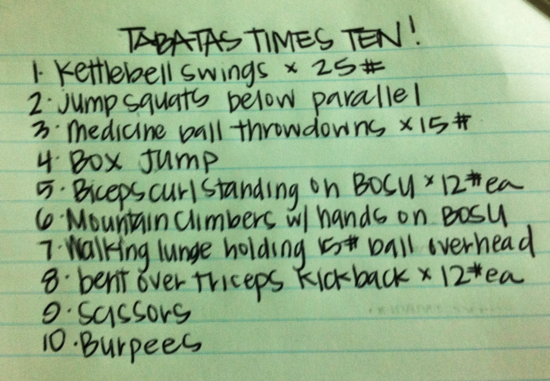 TABATAS TIMES TEN!
1. Kettlebell swings x 25#
2. Jump squats below parallel
3. Medicine ball throwdowns x 15#
4. BOX JUMP
5. Biceps curl standing on BOSU x 12# ea
6. Mountain climbers w/ hands on BOSU
7. Walking lunge holding 15# ball overhead
8. bent over triceps kickback x 12# ea
9. Scissors
10. Burpees